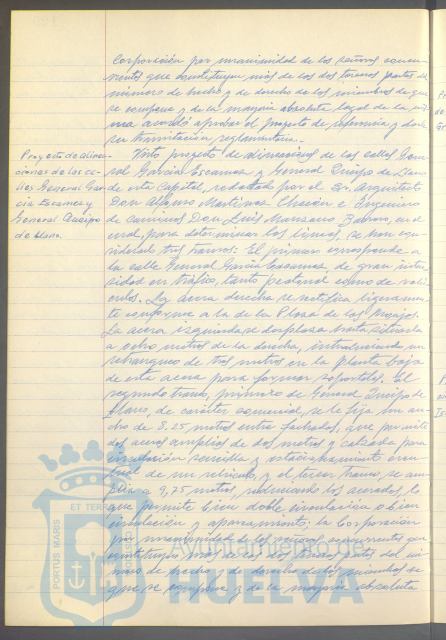 Corporación por unanimidad de los señores concu-
rrentes que constituyen más de las dos terceras partes del
número de hecho y de derecho de los miembros de que
se compone y de la mayoría absoluta legal de la mis
ma acordó aprobar el proyecto de referencia y darle
su tramitación reglamentaria.
Proyecto de alinea-
ciones de las ca-
lles General Gar
cía Escamez y
General Queipo
de Llano.
Visto proyecto de alineaciones de las calles Gene
ral García Escamez y General Queipo de Llano
de esta Capital, redactado por el Sr. Arquitecto
Don Alfonso Martínez Chacón e Ingeniero
de Caminos Don Luis Manzano, en el
cual, para determinar las líneas, se han con
siderado tres tramos: El primero corresponde a
la calle General García Escamez, de gran inten
sidad en tráfico, tanto peatonal como de vehí
culos. La acera derecha se rectifica ligeramen
te conforme a la de la Plaza de las Monjas.
La acera izquierda se desplaza hasta situarla
a ocho metros de la derecha, introduciendo un
retranqueo de tres metros en la planta baja
de esta acera para formar soportales. El
segundo tramo, primero de General Queipo de
Llano, de carácter comercial, se le fija un an
cho de 8,25 metros entre fachadas, que permite
dos aceras amplias de dos metros y calzada para
circulación sencilla y estacionamiento even
tual de un vehículo, y el tercer tramo, se am
plía a 9,75 metros reduciendo los acerados, lo
que permite bien doble circulación o bien
circulación y aparcamiento, la Corporación
por unanimidad de los señores concurrentes que
constituyen más de las dos terceras partes del nú
mero de hecho y de derecho de los miembros de
que se compone y de la mayoría absoluta
PORTUS MARIS
ET TERRAE
Ayuntamiento de
HUELVA